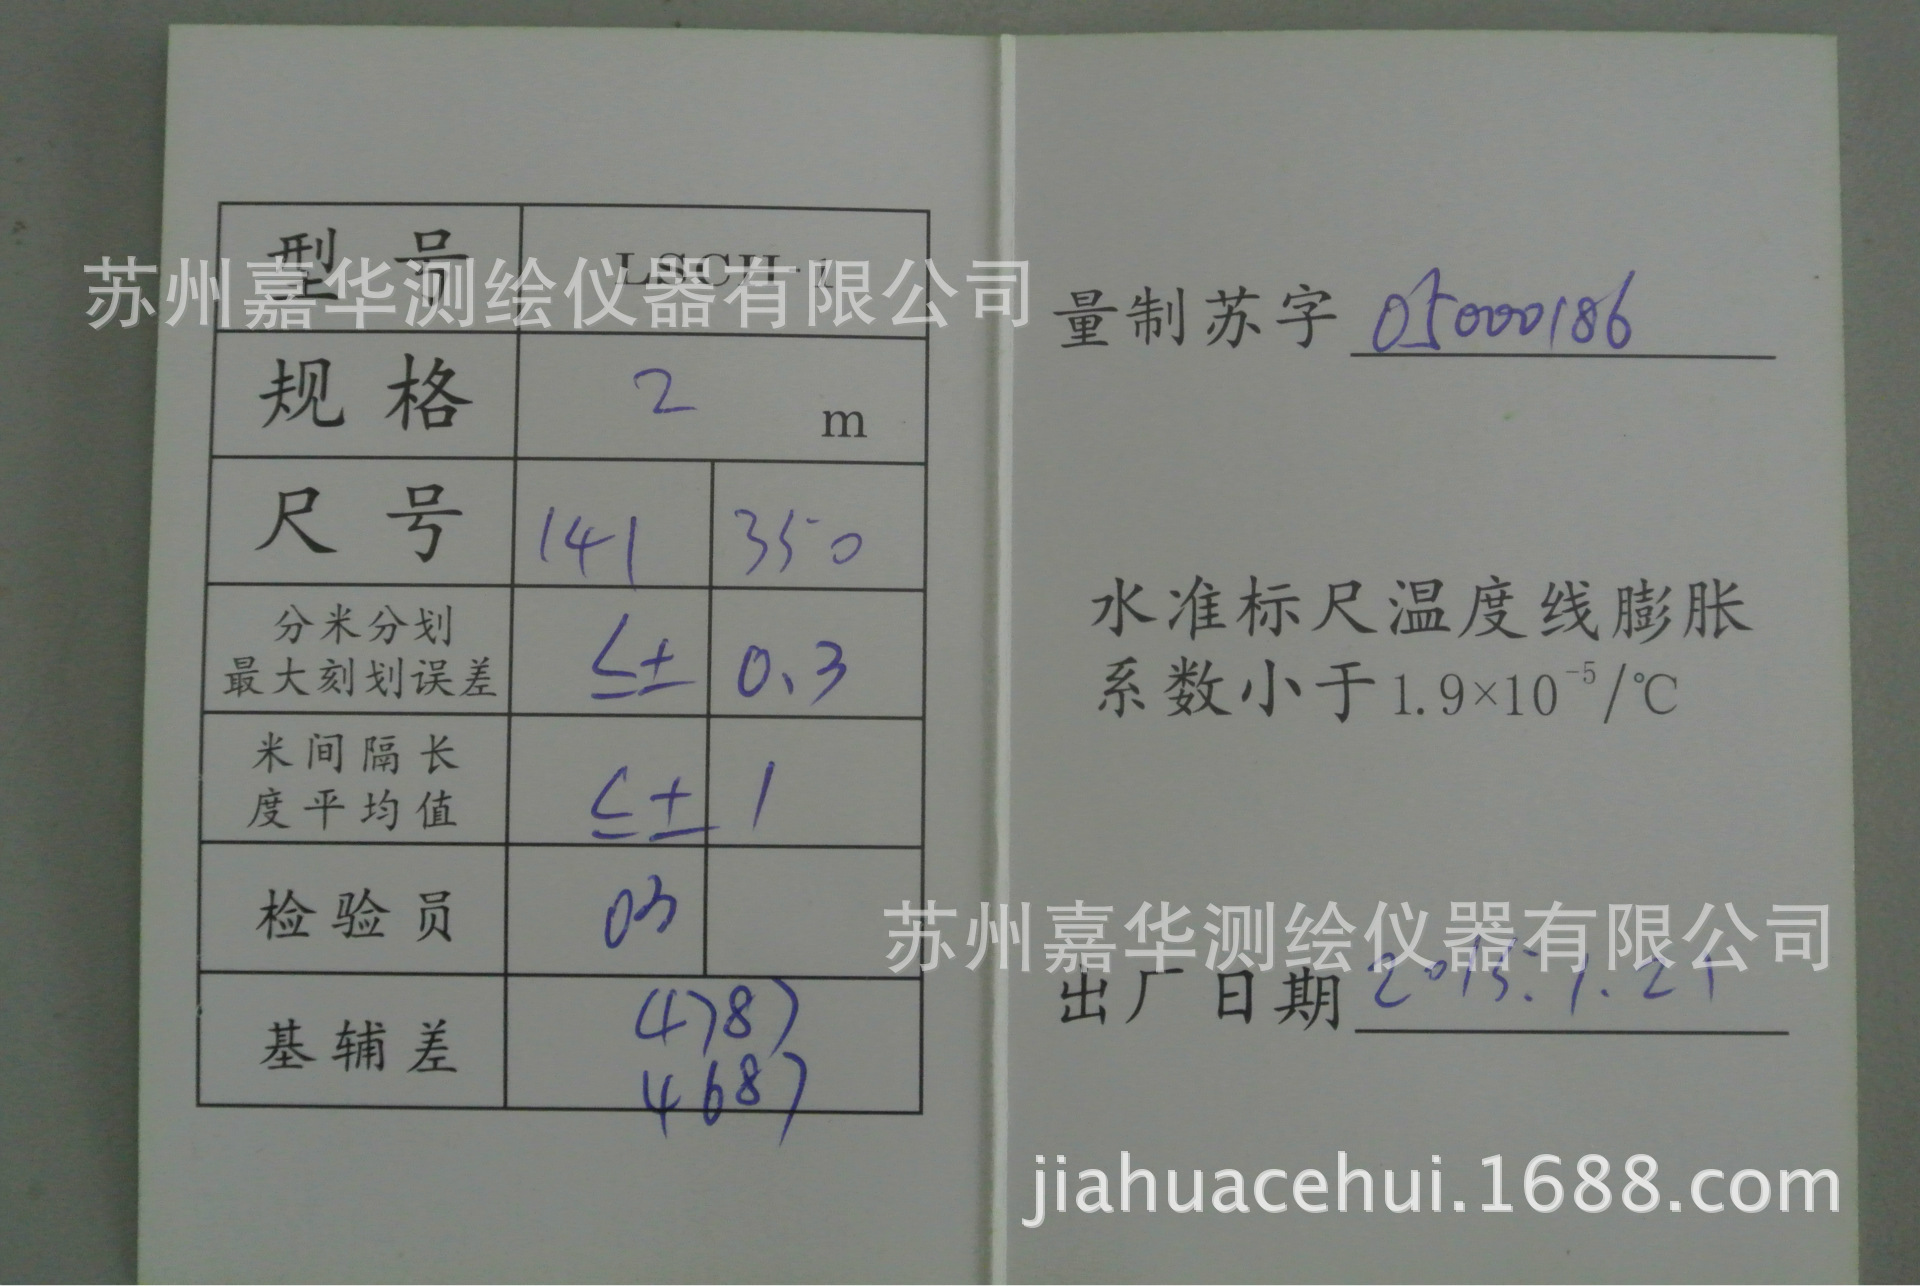 型号 LSCH-1
苏州嘉华测绘仪器有限公司
规格 2 m
尺号 141 350
分米分划
最大刻划误差 ≤± 0.3
米间隔长
度平均值 ≤± 1
检验员 03
基辅差 4787
4687
量制苏字 05000186
水准标尺温度线膨胀
系数小于1.9×10⁻⁵/℃
苏州嘉华测绘仪器有限公司
出厂日期 2015.1.21
jiahuacehui.1688.com